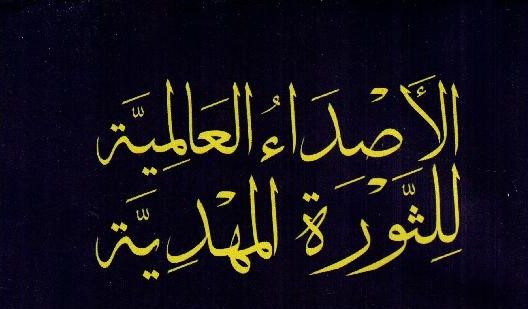 الأَصْدَاءُ العَالمِيَّة
لِلثَّوْرَةِ المَهْدِيَّة